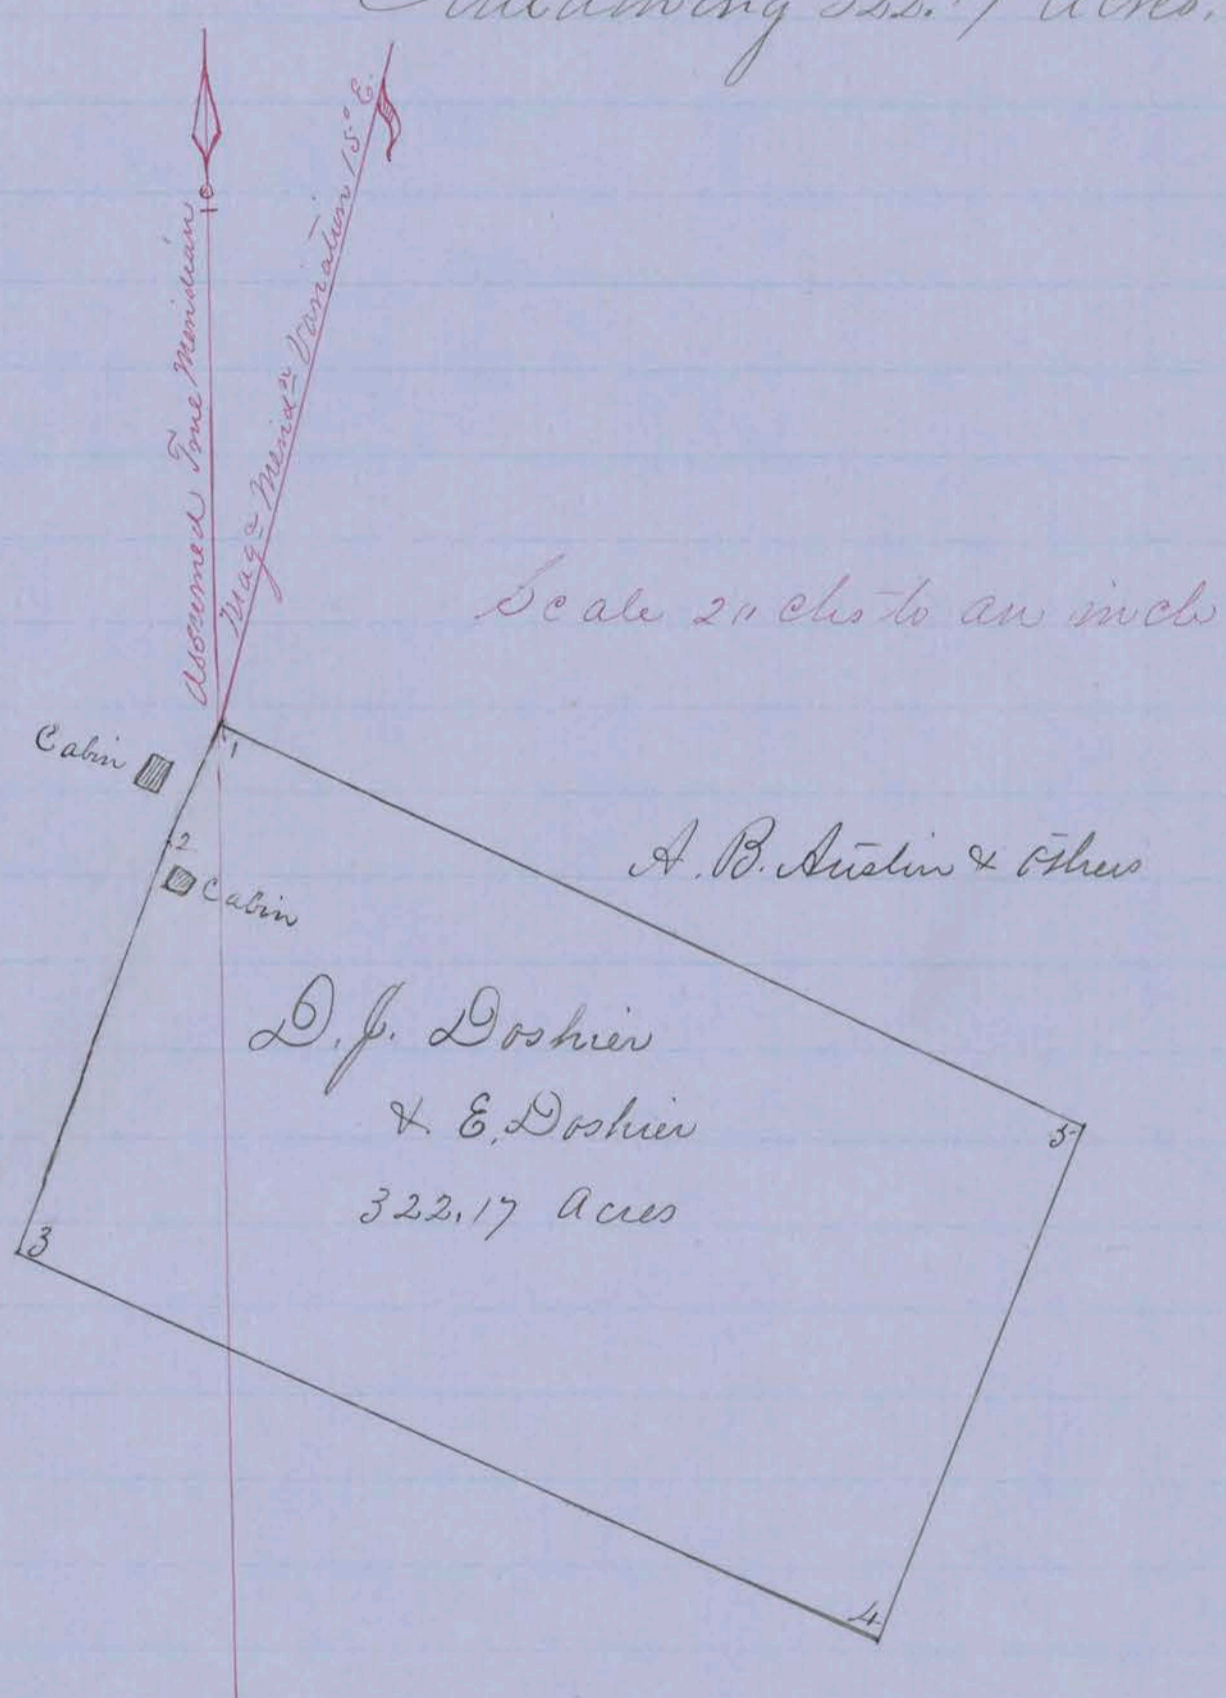 Containing 322.17 acres.
Assumed True Meridian
Mag^c Merid^n Variation 15° E.
Scale 20 chs to an inch
Cabin
1
2
Cabin
A. B. Austin & Others
D. J. Doshier
& E. Doshier
322.17 Acres
3
4
5